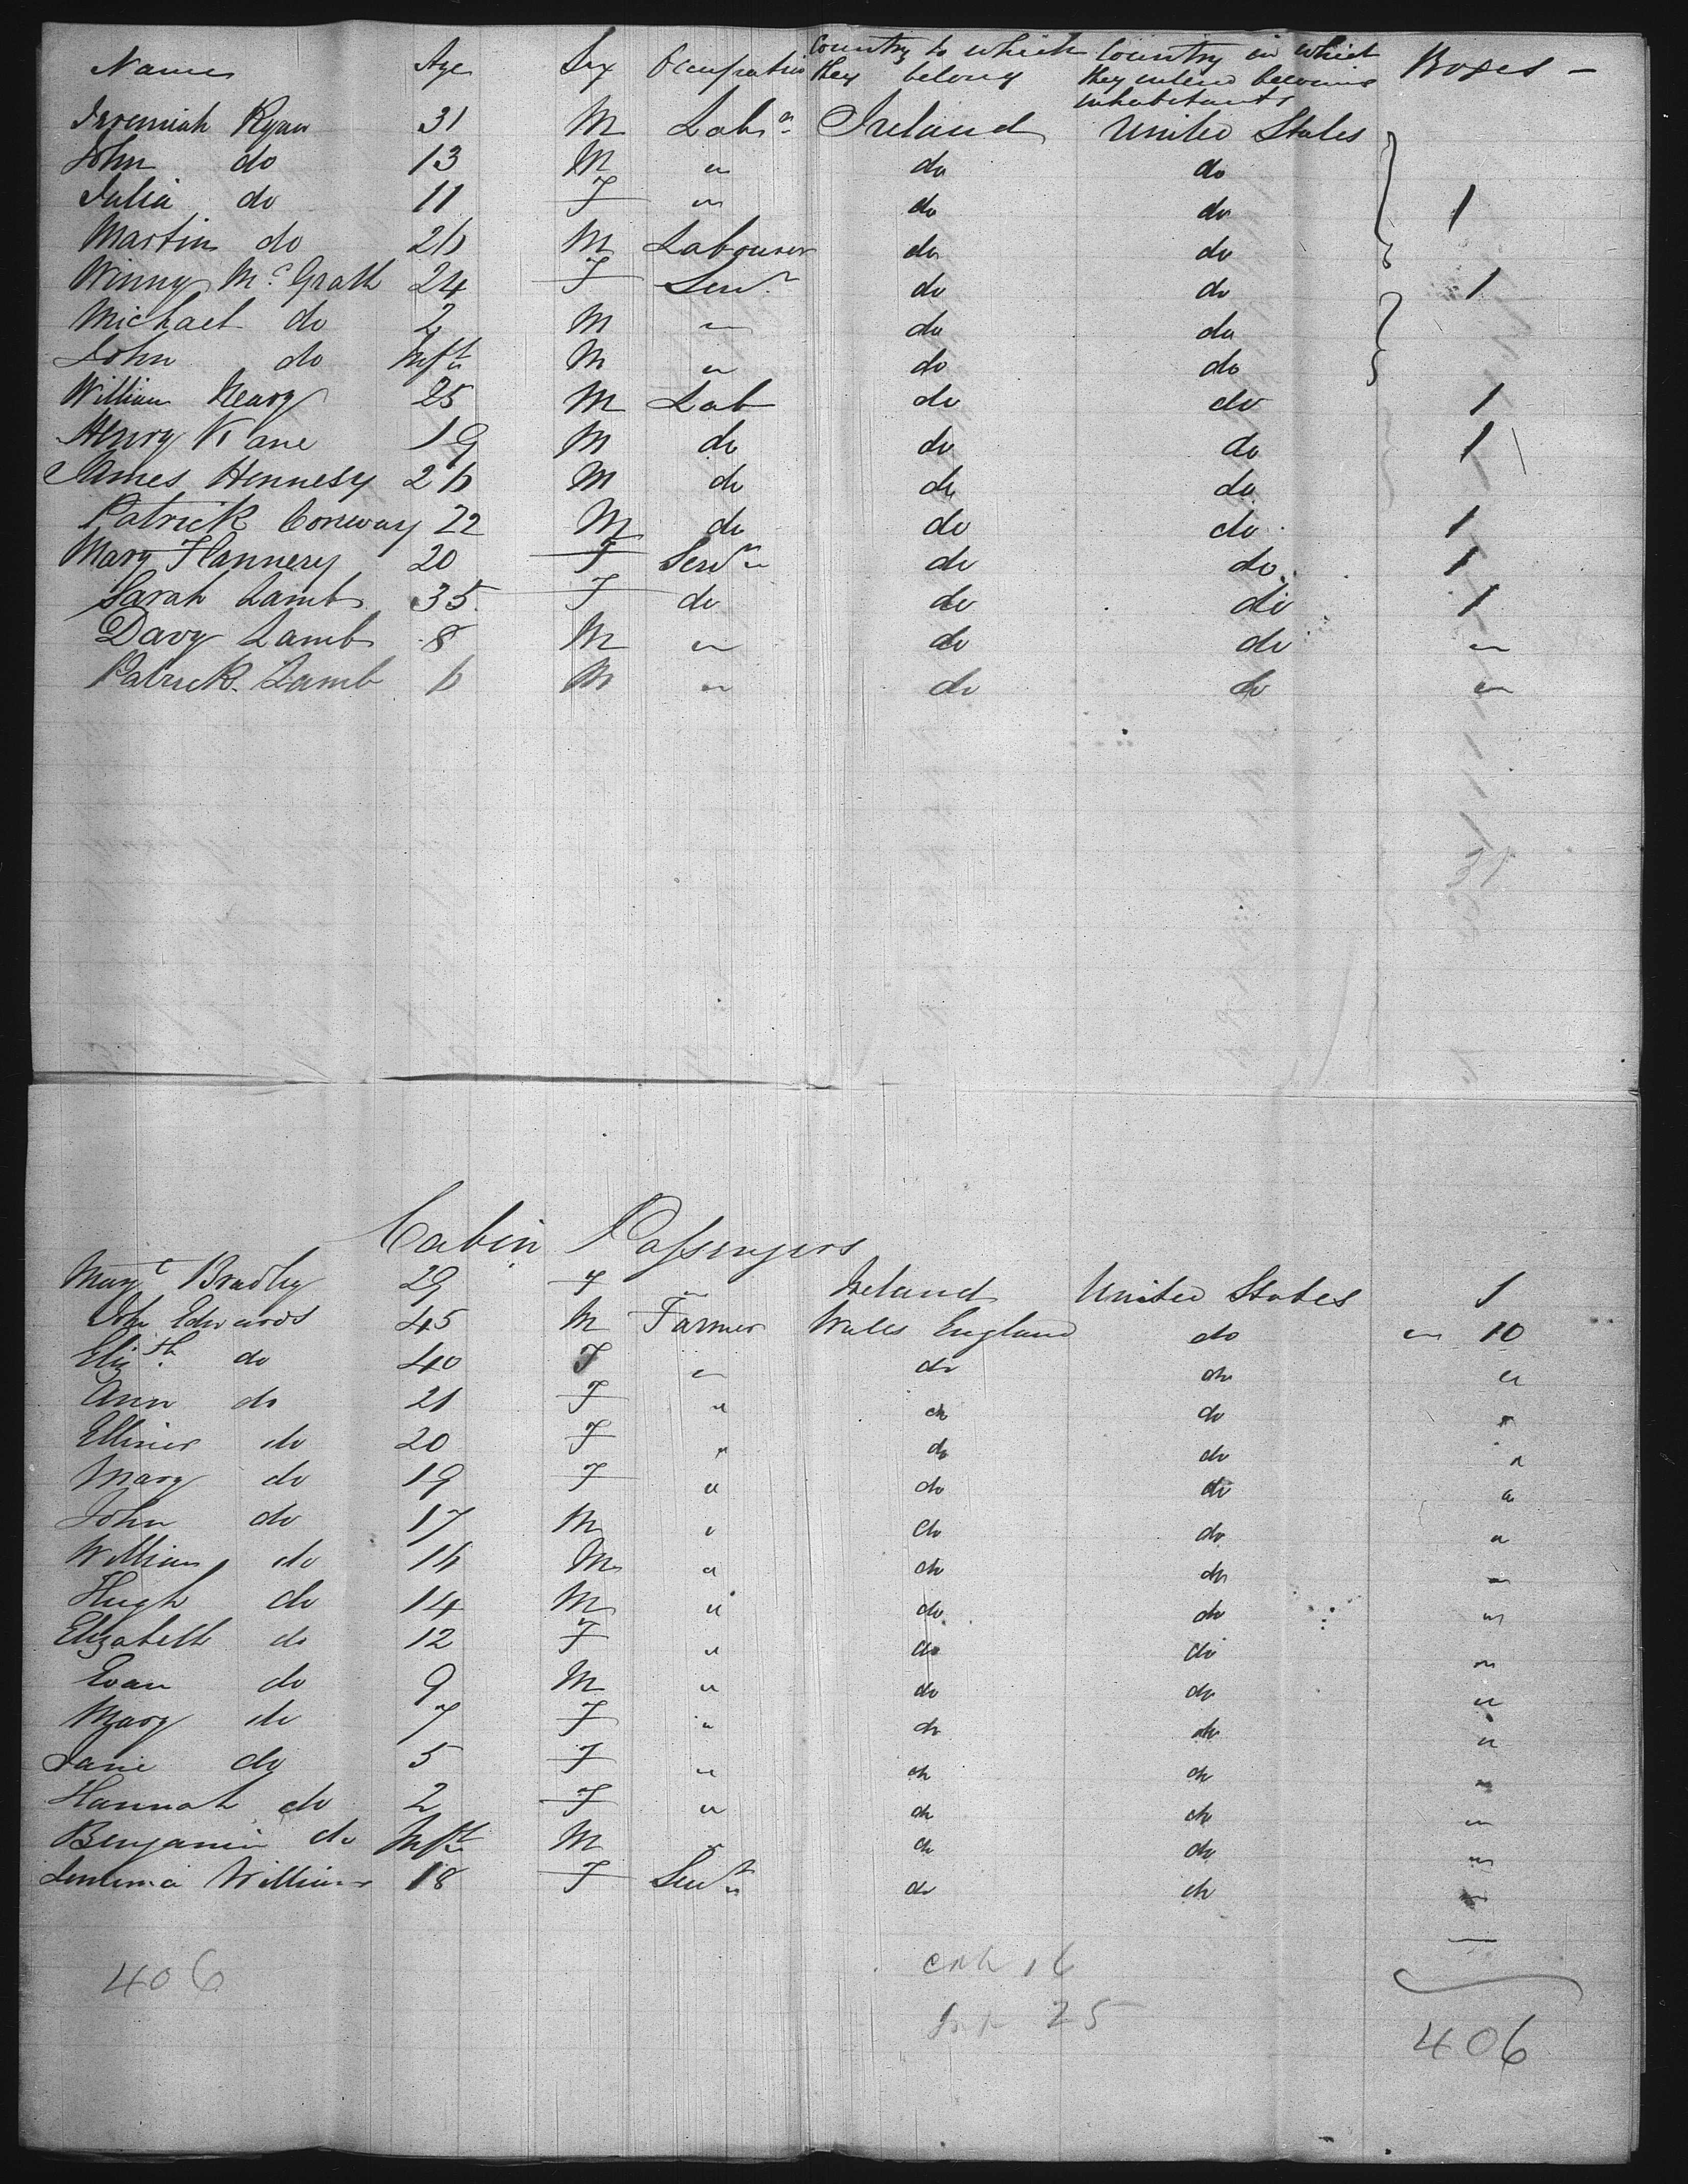 Names Age Sex Occupation Country to which they belong Country in which they intend becoming inhabitants Boxes —
Jeremiah Ryan 31 M Labr Ireland United States
John do 13 M " do do
Julia do 11 F " do do 1
Martin do 26 M Labourer do do
Winny McGrath 24 F Servt do do 1
Michael do 2 M " do do
John do Inft M " do do
William Neary 25 M Lab do do 1
Henry Kane 19 M do do do 1
James Hennesy 26 M do do do
Patrick Conway 22 M do do do 1
Mary Flannery 20 F Servt do do 1
Sarah Lamb 35 F do do do 1
Davy Lamb 8 M " do do "
Patrick Lamb 6 M " do do "
31
Cabin Passengers
Margt Bradley 29 F " Ireland United States 1
John Edwards 45 M Farmer Wales England do " 10
Elizth do 40 F " do do "
Ann do 21 F " do do "
Ellinor do 20 F " do do "
Mary do 19 F " do do "
John do 17 M " do do "
William do 16 M " do do "
Hugh do 14 M " do do "
Elizabeth do 12 F " do do "
Evan do 9 M " do do "
Mary do 7 F " do do "
Jane do 5 F " do do "
Hannah do 2 F " do do "
Benjamin do Inft M " do do "
Williams 18 F Servt do do "
406 cab 16
Inf 25
406